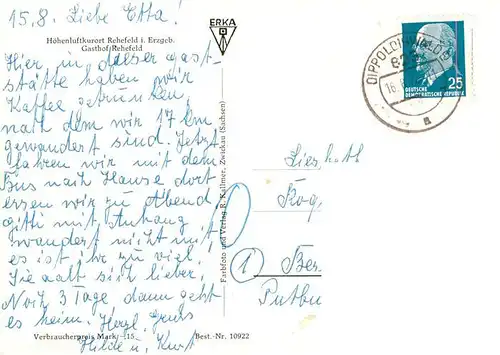 15.8. Liebe Etta!
ERKA
Höhenluftkurort Rehefeld i. Erzgeb.
Gasthof Rehefeld
Hier in dieser Gast-
stätte haben wir
Kaffee getrunken,
nach dem wir 17 km
gewandert sind. Jetzt
fahren wir mit dem
Bus nach Hause dort
essen wir zu Abend
Gitti mit Anhang
wandert nicht mit
es ist ihr zu viel.
Sie aalt sich lieber.
Noch 3 Tage dann geht
es heim. Herzl. Gruss
Hilde u. Kurt
Verbraucherpreis Mark -,15
Best.-Nr. 10922
Farbfoto und Verlag R. Kallmer, Zwickau (Sachsen)
DIPPOLDISWALDE
16.
a
25
DEUTSCHE
DEMOKRATISCHE REPUBLIK
Kog
1
Ber
Putbu